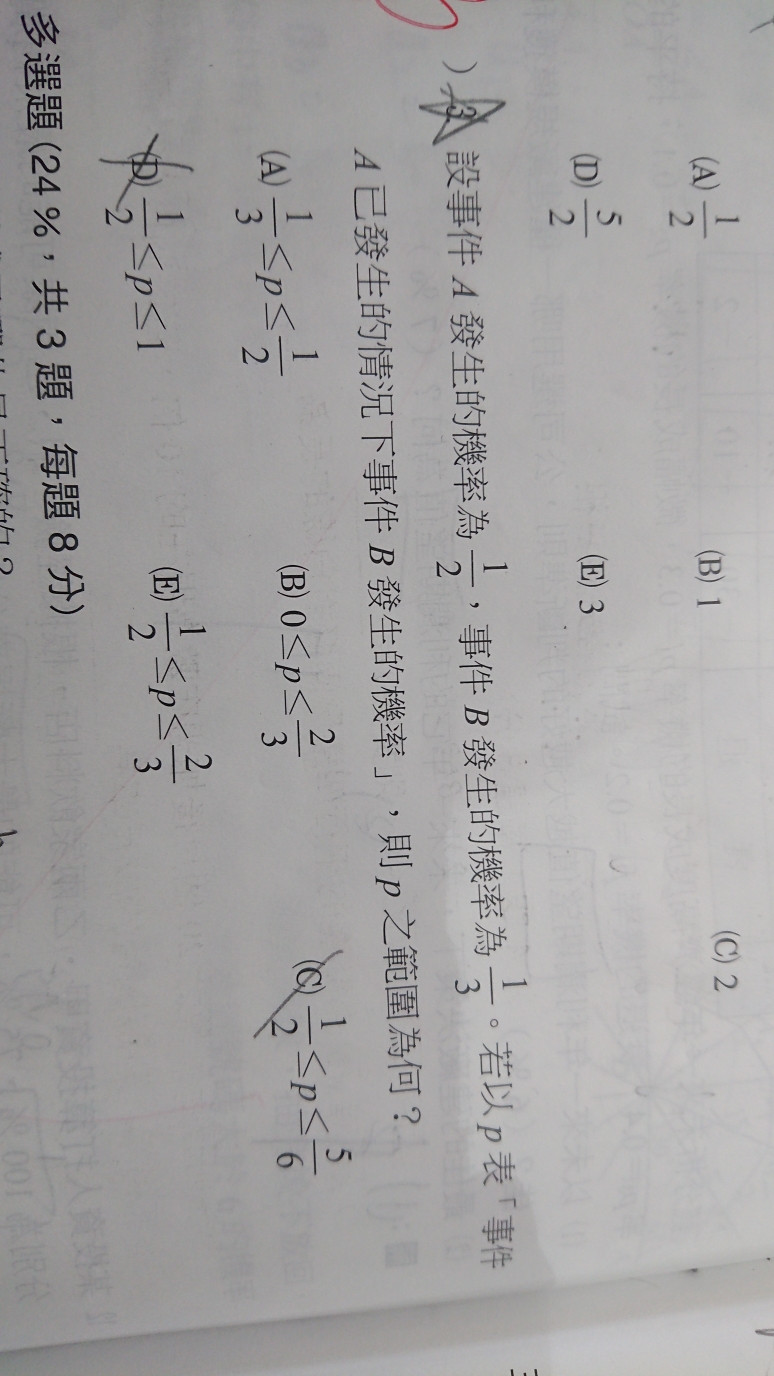 (A) 1/2 (B) 1 (C) 2
(D) 5/2 (E) 3
) 3. 設事件 A 發生的機率為 1/2，事件 B 發生的機率為 1/3。若以 p 表「事件
A 已發生的情況下事件 B 發生的機率」，則 p 之範圍為何？
(A) 1/3 ≤ p ≤ 1/2 (B) 0 ≤ p ≤ 2/3 (C) 1/2 ≤ p ≤ 5/6
(D) 1/2 ≤ p ≤ 1 (E) 1/2 ≤ p ≤ 2/3
多選題 (24 %，共 3 題，每題 8 分)